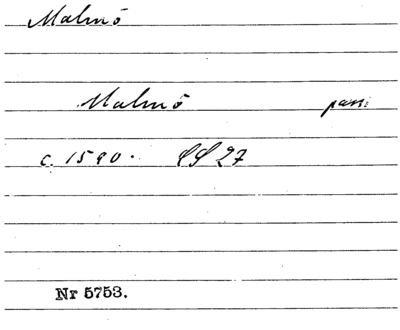 Malmö
Malmö pars.
c. 1590. SS 27
Nr 5753.